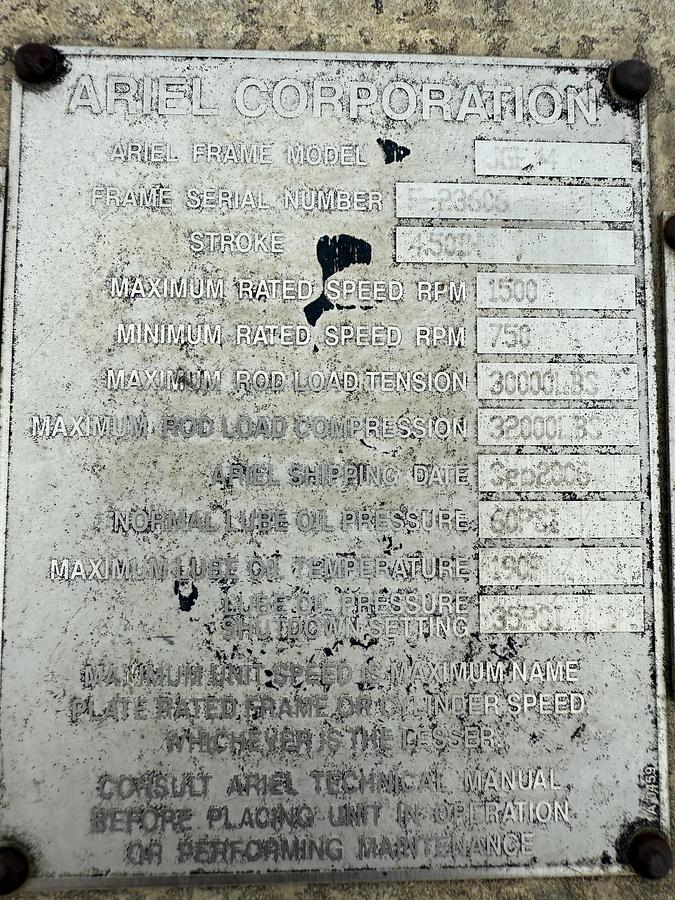 ARIEL CORPORATION
ARIEL FRAME MODEL
FRAME SERIAL NUMBER F-23606
STROKE 4.50IN
MAXIMUM RATED SPEED RPM 1500
MINIMUM RATED SPEED RPM 750
MAXIMUM ROD LOAD TENSION 30000LBS
MAXIMUM ROD LOAD COMPRESSION 32000LBS
ARIEL SHIPPING DATE Sep2006
NORMAL LUBE OIL PRESSURE 60PSI
MAXIMUM LUBE OIL TEMPERATURE 190F
LUBE OIL PRESSURE
SHUTDOWN SETTING 35PSI
MAXIMUM UNIT SPEED IS MAXIMUM NAME
PLATE RATED FRAME OR CYLINDER SPEED
WHICHEVER IS THE LESSER.
CONSULT ARIEL TECHNICAL MANUAL
BEFORE PLACING UNIT IN OPERATION
OR PERFORMING MAINTENANCE
A-0459